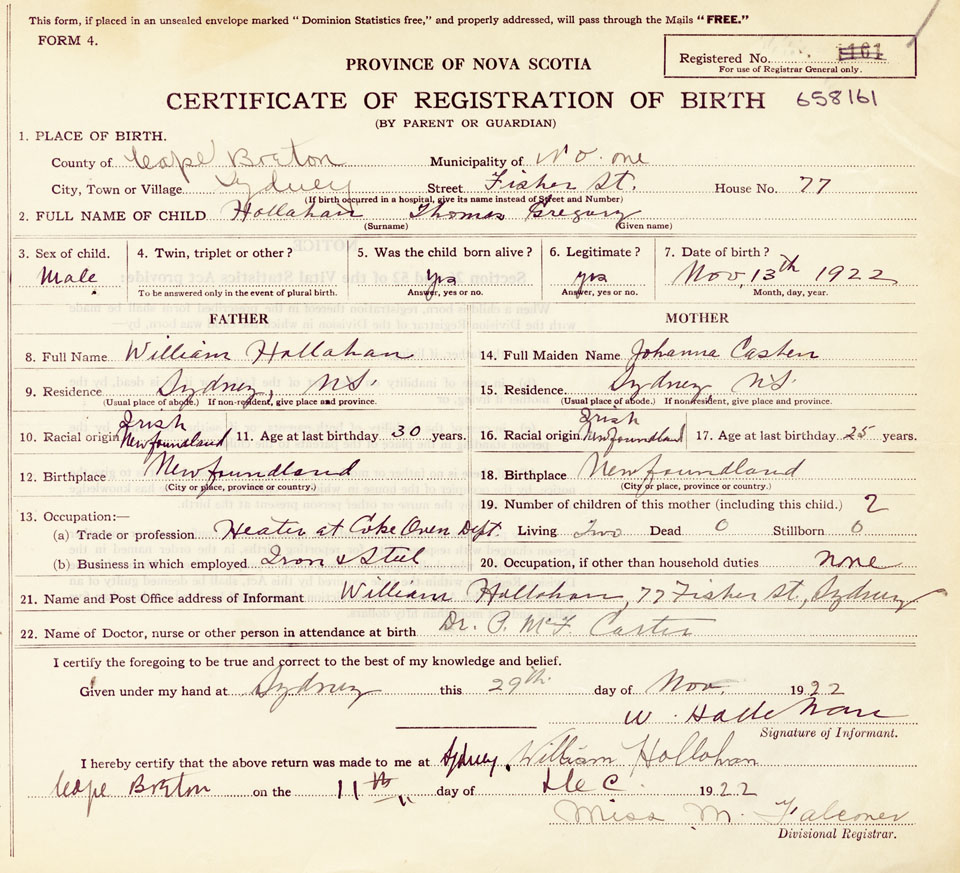 This form, if placed in an unsealed envelope marked "Dominion Statistics free," and properly addressed, will pass through the Mails "FREE."
FORM 4.
Registered No. 161
For use of Registrar General only.
PROVINCE OF NOVA SCOTIA
CERTIFICATE OF REGISTRATION OF BIRTH 658161
(BY PARENT OR GUARDIAN)
1. PLACE OF BIRTH.
County of Cape Breton Municipality of No. one
City, Town or Village Sydney Street Fisher St. House No. 77
(If birth occurred in a hospital, give its name instead of Street and Number)
2. FULL NAME OF CHILD Hollahan Thomas Gregory
(Surname) (Given name)
3. Sex of child. 4. Twin, triplet or other? 5. Was the child born alive? 6. Legitimate? 7. Date of birth?
Male yes yes Nov, 13th 1922
To be answered only in the event of plural birth. Answer, yes or no. Answer, yes or no. Month, day, year.
FATHER MOTHER
8. Full Name William Hollahan 14. Full Maiden Name Johanna Casten
9. Residence Sydney, NS. 15. Residence Sydney NS.
(Usual place of abode.) If non-resident, give place and province. (Usual place of abode.) If nonresident, give place and province.
Irish Irish
10. Racial origin Newfoundland 11. Age at last birthday 30 years. 16. Racial origin Newfoundland 17. Age at last birthday 25 years.
12. Birthplace Newfoundland 18. Birthplace Newfoundland
(City or place, province or country.) (City or place, province or country.)
19. Number of children of this mother (including this child.) 2
13. Occupation:—
(a) Trade or profession Heater at Coke Oven Dept. Living Two Dead 0 Stillborn 0
(b) Business in which employed Iron & Steel 20. Occupation, if other than household duties None
21. Name and Post Office address of Informant William Hollahan, 77 Fisher St, Sydney
22. Name of Doctor, nurse or other person in attendance at birth Dr. P. McF. Carter
I certify the foregoing to be true and correct to the best of my knowledge and belief.
Given under my hand at Sydney this 29th. day of Nov, 1922
W. Hallehan
Signature of Informant.
I hereby certify that the above return was made to me at Sydney. William Hollahan
Cape Breton on the 11th day of Dec. 1922
Miss M. Falconer
Divisional Registrar.